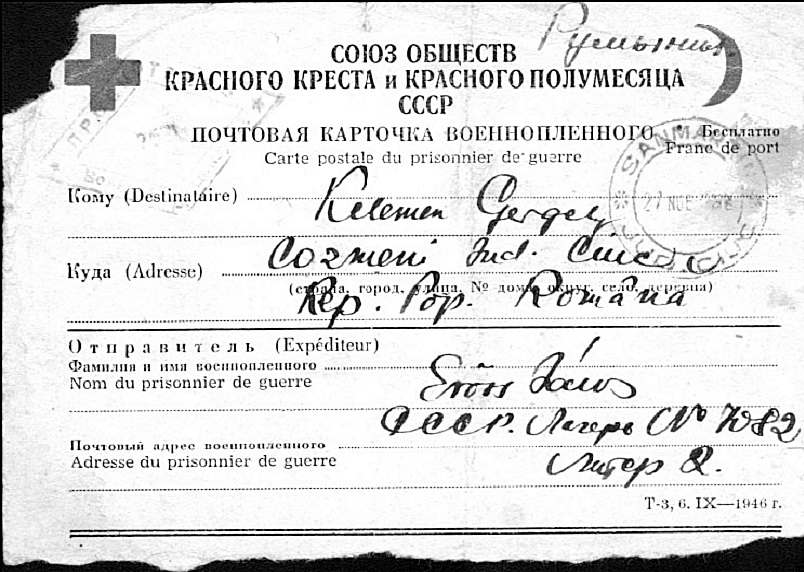 Румыния
СОЮЗ ОБЩЕСТВ
КРАСНОГО КРЕСТА и КРАСНОГО ПОЛУМЕСЯЦА
СССР
ПОЧТОВАЯ КАРТОЧКА ВОЕННОПЛЕННОГО Бесплатно
Carte postale du prisonnier de guerre Franc de port
SANMAR
27 NOE
Кому (Destinataire) Kelemen Gergely
Куда (Adresse) Cozmeni Jud. Ciuc
(страна, город, улица, № дома, округ, село, деревня)
Rep. Pop. Româna
Отправитель (Expéditeur)
Фамилия и имя военнопленного
Nom du prisonnier de guerre Erőss János
СССР. Лагерь № 7082
Почтовый адрес военнопленного
Adresse du prisonnier de guerre Литер 2.
Т-3, 6. IX—1946 г.